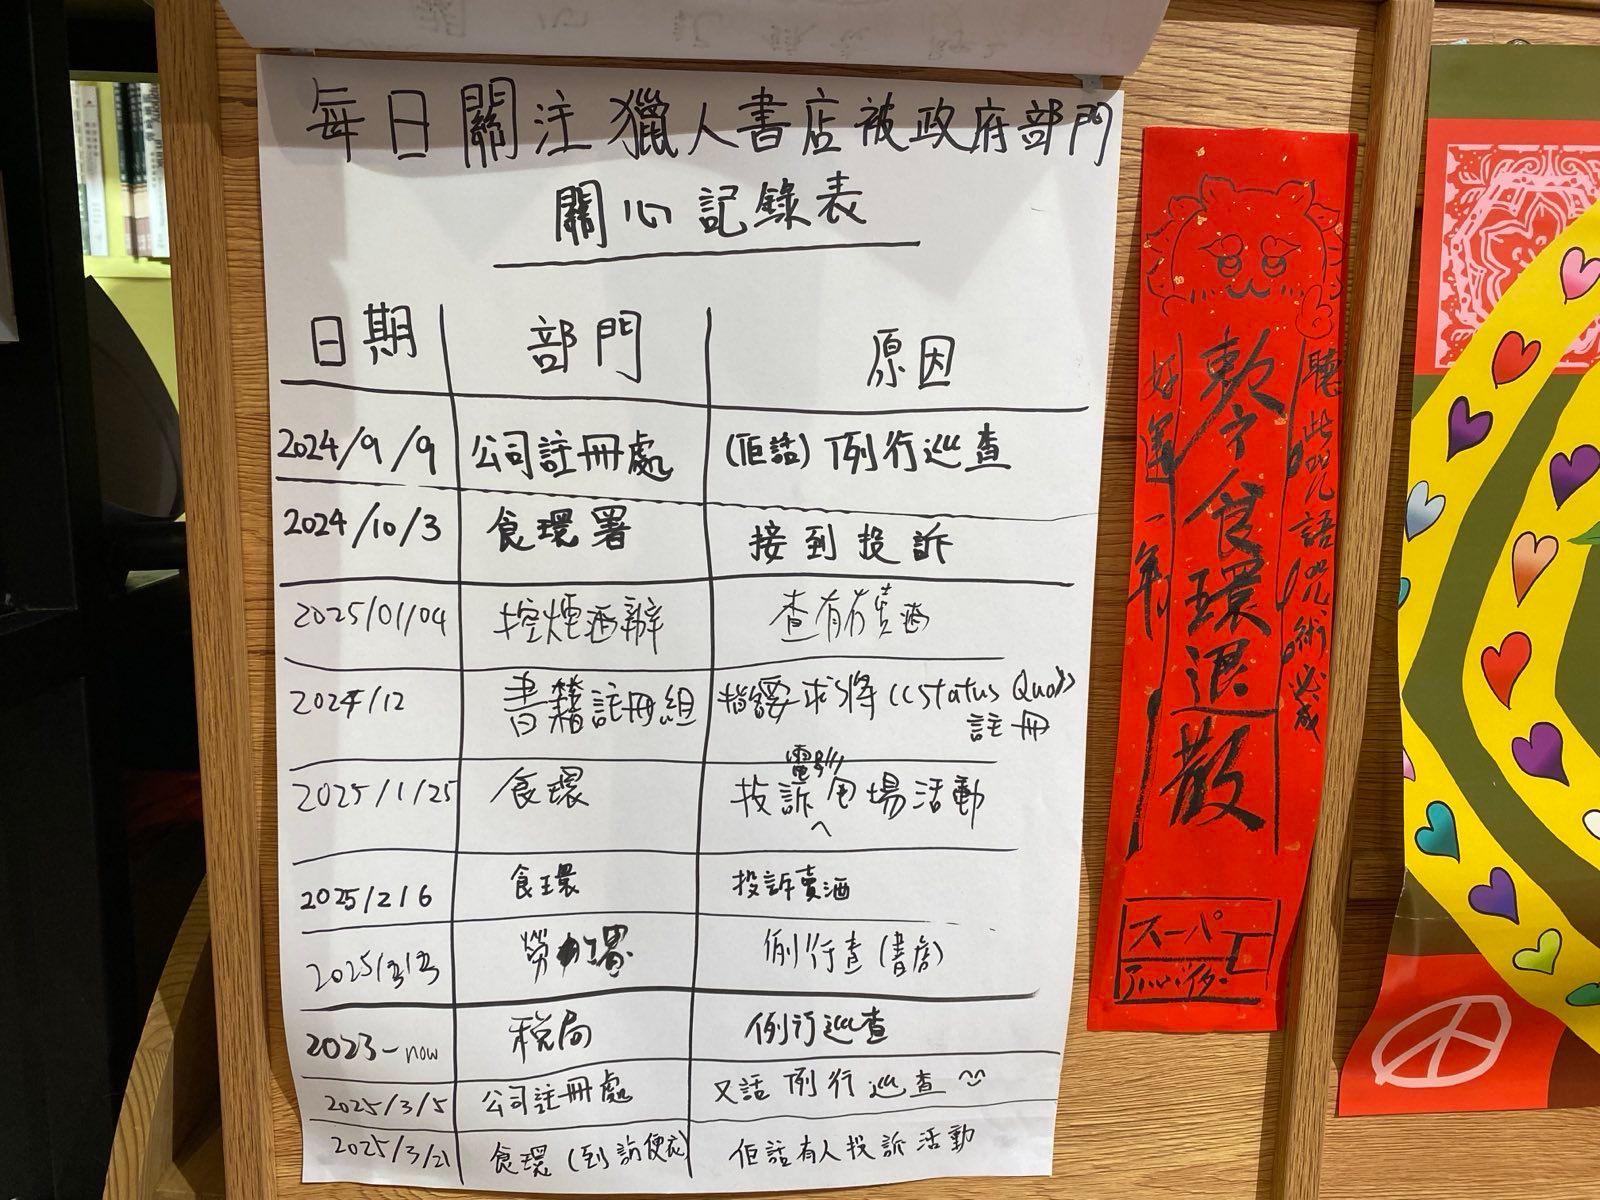 每日關注獵人書店被政府部門
關心記錄表
日期 部門 原因
2024/9/9 公司註冊處 (佢話) 例行巡查
2024/10/3 食環署 接到投訴
2025/01/04 控煙酒辦 查有冇賣酒
2024/12 書籍註冊組 要求將《Status Quo》
註冊
2025/1/25 食環 投訴電影放場活動
2025/2/6 食環 投訴賣酒
勞工署 例行查(書店)
2023-now 稅局 例行巡查
2025/3/5 公司註冊處 又話例行巡查
2025/3/21 食環 (到訪便衣) 佢話有人投訴活動
聽此咒語咒術必成
敕令食環退散
好運一年
スーパー